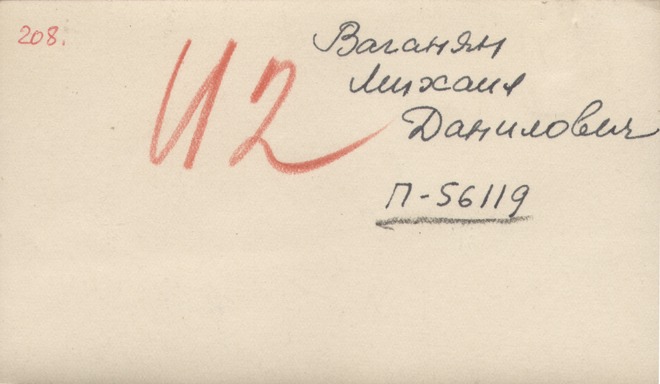 208.
Ваганян
Михаил
Данилович
И2
П-56119